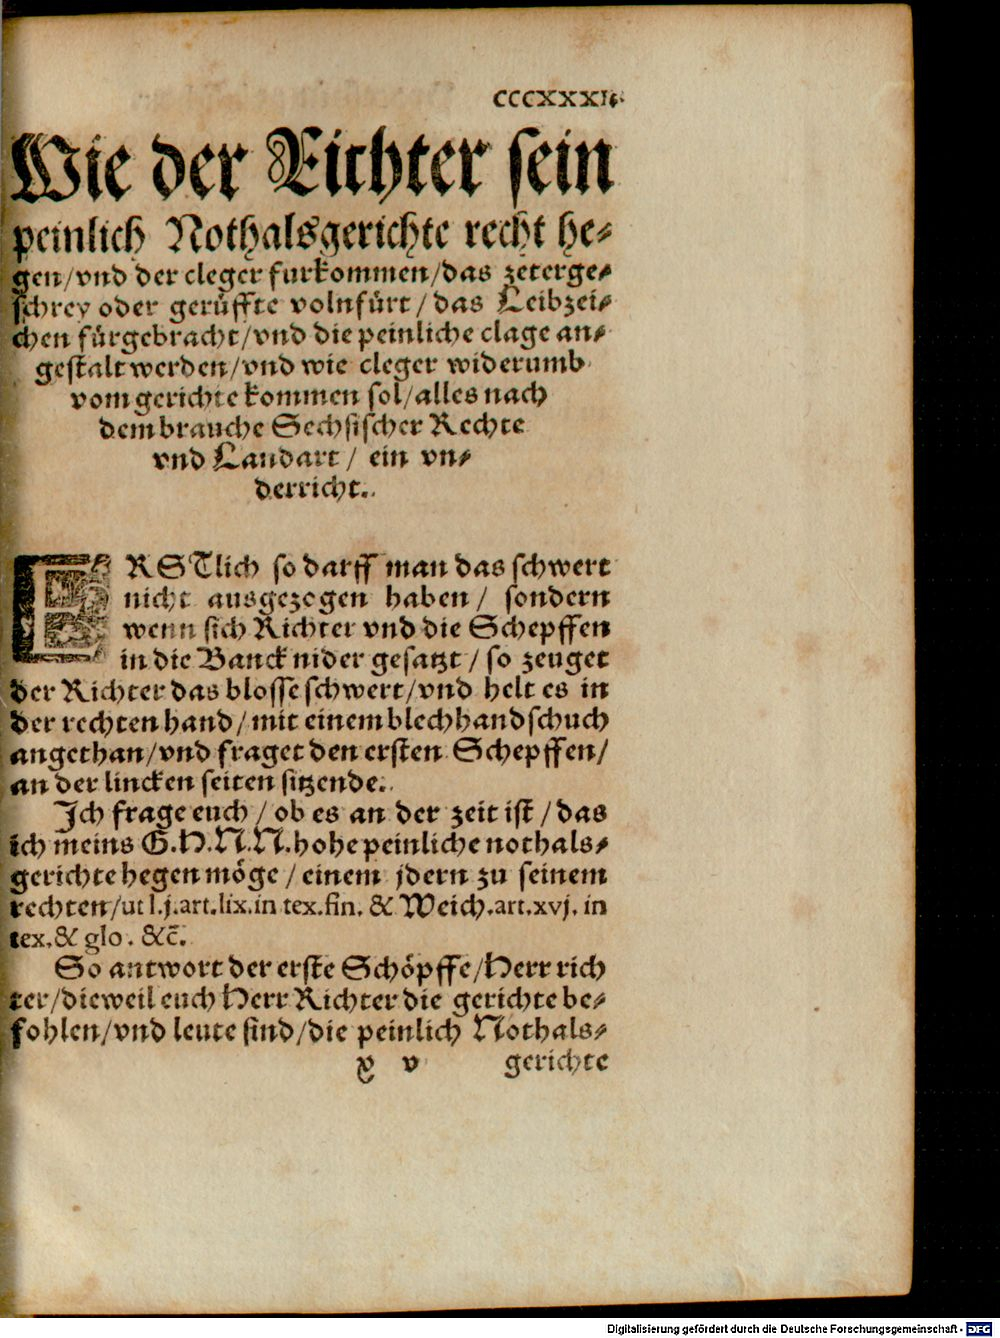 CCCXXXII.
Wie der Richter sein
peinlich Nothalsgerichte recht he⸗
gen/vnd der cleger furkommen/das zeterge⸗
schrey oder gerüffte volnfürt/das Leibzei⸗
chen fürgebracht/vnd die peinliche clage an⸗
gestalt werden/vnd wie cleger widerumb
vom gerichte kommen sol/alles nach
dem brauche Sechsischer Rechte
vnd Landart/ ein vn⸗
derricht.
ERSTlich so darff man das schwert
nicht ausgezogen haben/ sondern
wenn sich Richter vnd die Schepffen
in die Banck nider gesatzt/so zeuget
der Richter das blosse schwert/vnd helt es in
der rechten hand/mit einem blechhandschuch
angethan/vnd fraget den ersten Schepffen/
an der lincken seiten sitzende.
Ich frage euch/ob es an der zeit ist/das
ich meins G.H.N.N.hohe peinliche nothals⸗
gerichte hegen möge/einem jdern zu seinem
rechten/ut l.j.art.lix.in tex.fin. & Weich.art.xvj. in
tex.& glo. &c̄.
So antwort der erste Schöpffe/Herr rich
ter/dieweil euch Herr Richter die gerichte be⸗
fohlen/vnd leute sind/die peinlich Nothals⸗
x v gerichte
Digitalisierung gefördert durch die Deutsche Forschungsgemeinschaft - DFG